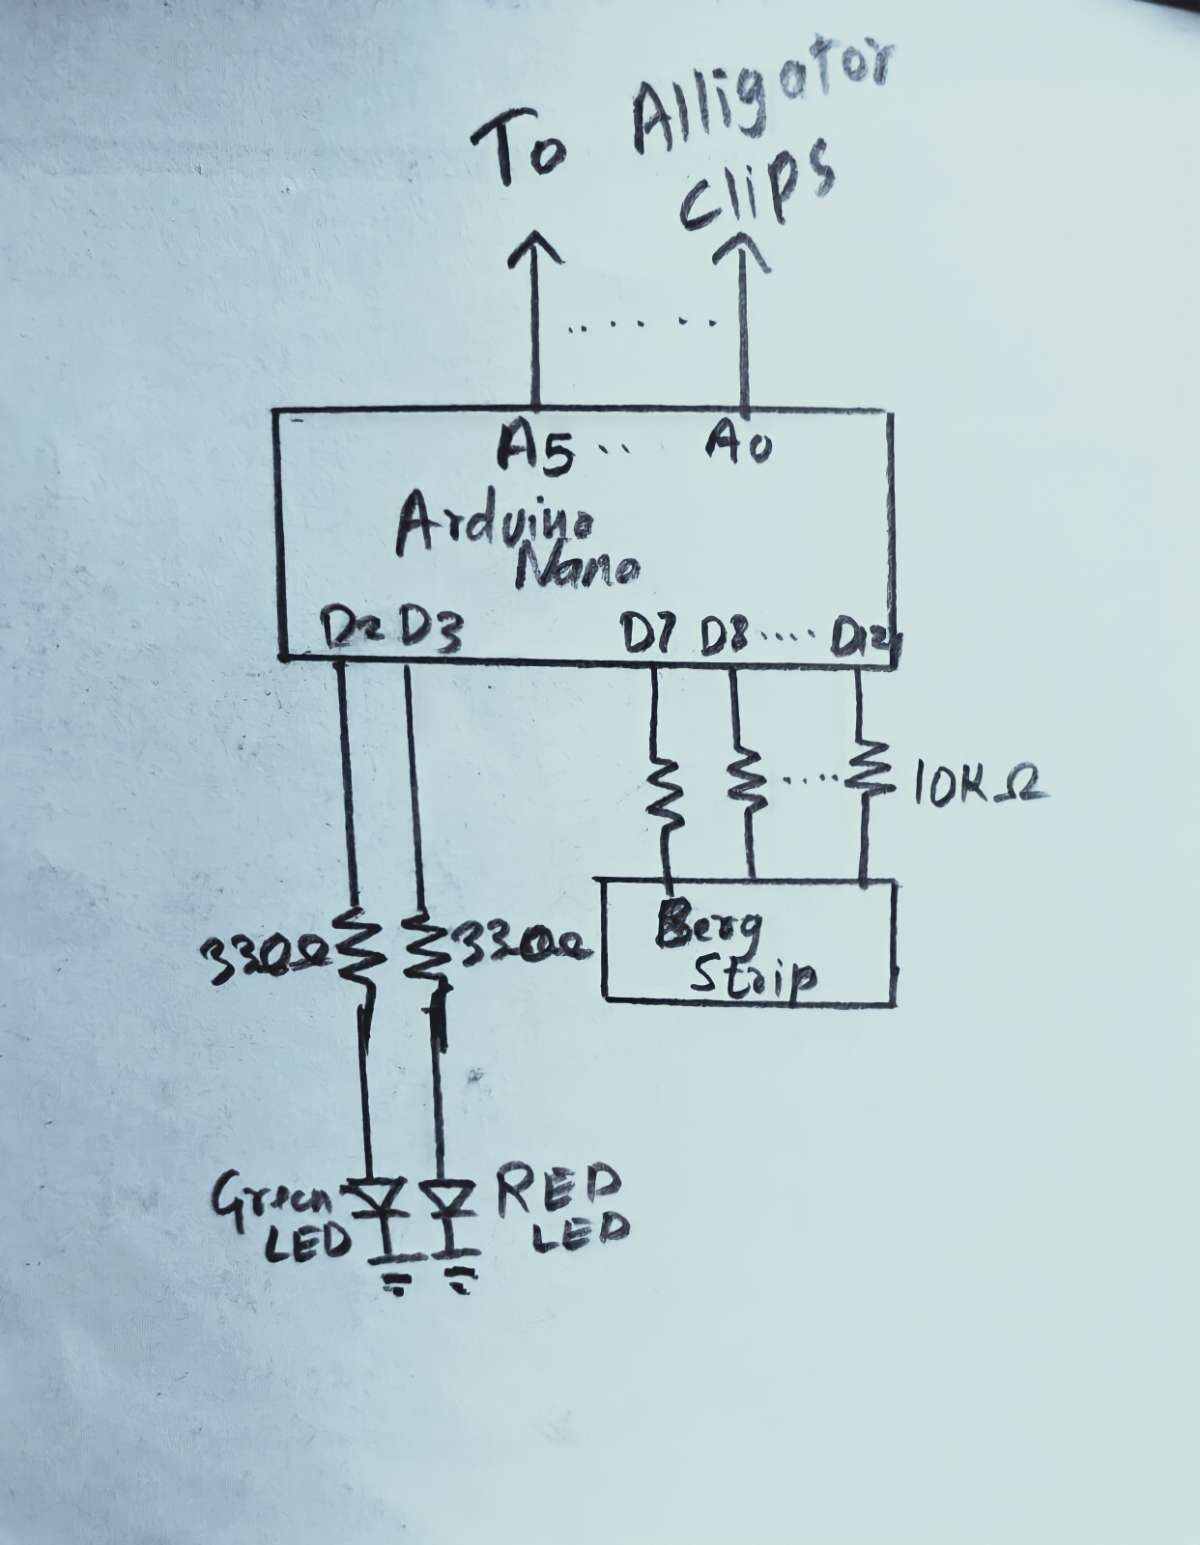 To Alligator
clips
A5 .. A0
Arduino
Nano
D2 D3 D7 D8 .... D12
10KΩ
330Ω 330Ω
Berg
Strip
Green
LED
RED
LED